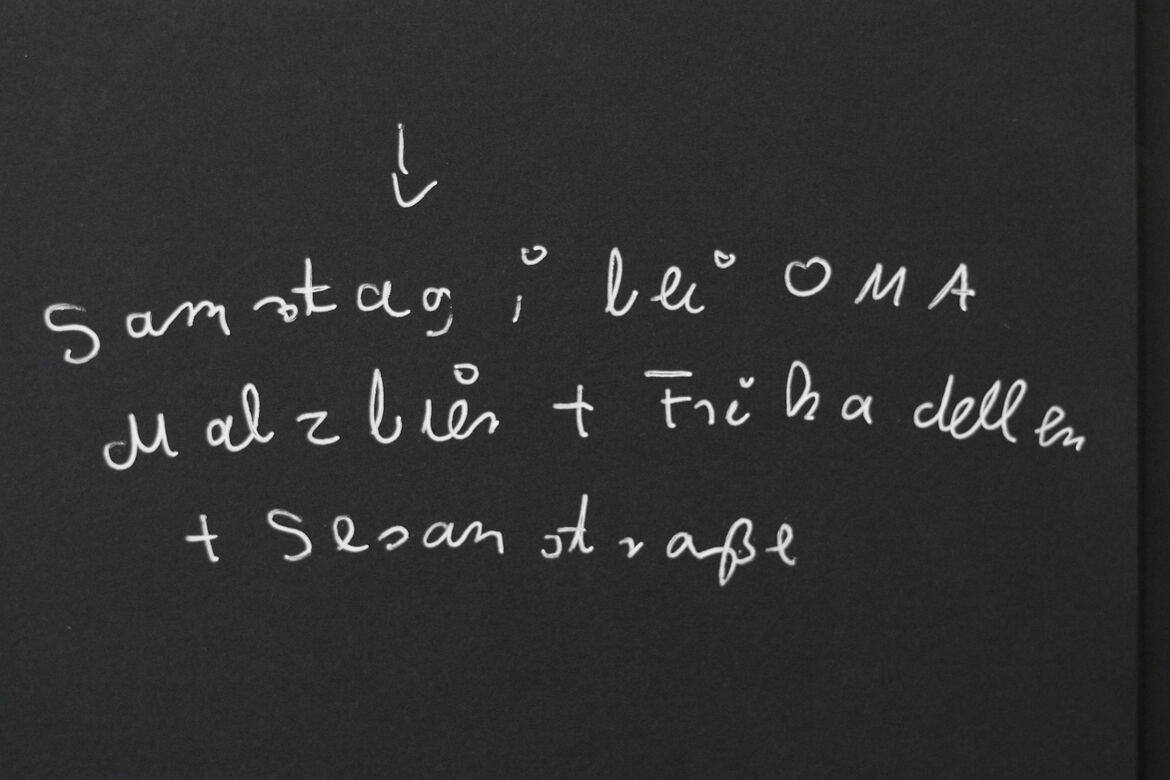 ↓
Samstag ; bei OMA
Malzbier + Frikadellen
+ Sesamstraße